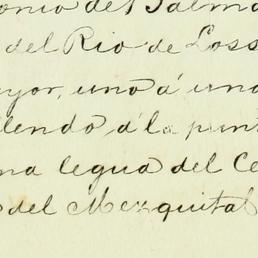 onio del Palma
del Rio de Loss
yor, uno á una
lendo á la punt
na legua del Ce
del Mezquital